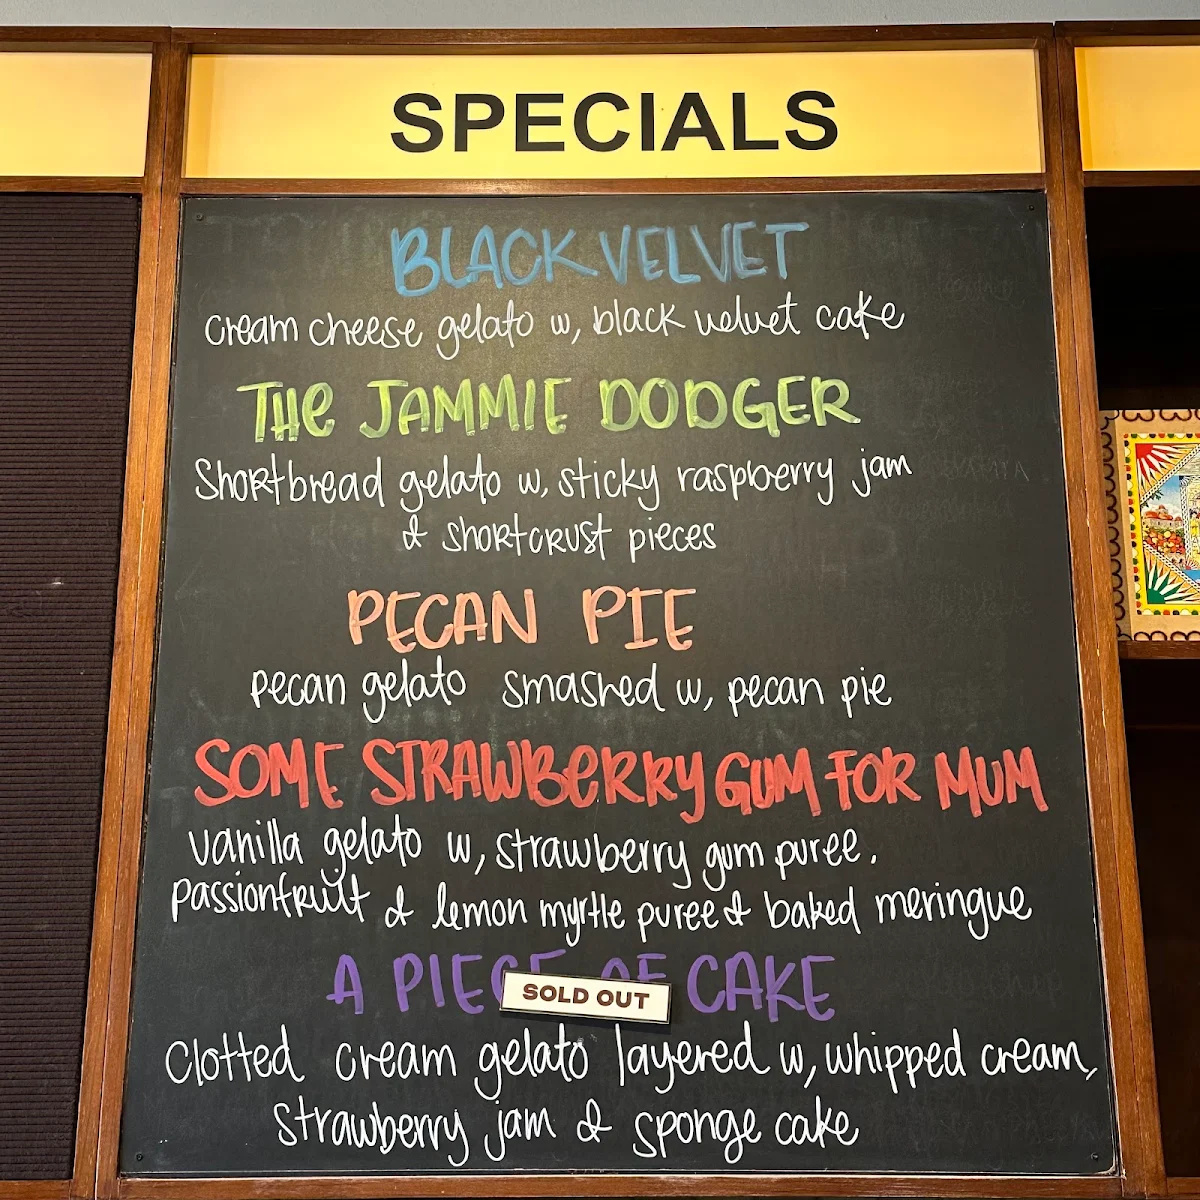 SPECIALS
BLACK VELVET
cream cheese gelato w, black velvet cake
THE JAMMIE DODGER
Shortbread gelato w, sticky raspberry jam
& shortcrust pieces
PECAN PIE
pecan gelato smashed w, pecan pie
SOME STRAWBERRY GUM FOR MUM
vanilla gelato w, strawberry gum puree,
passionfruit & lemon myrtle puree & baked meringue
A PIECE OF CAKE
SOLD OUT
Clotted cream gelato layered w, whipped cream,
strawberry jam & sponge cake